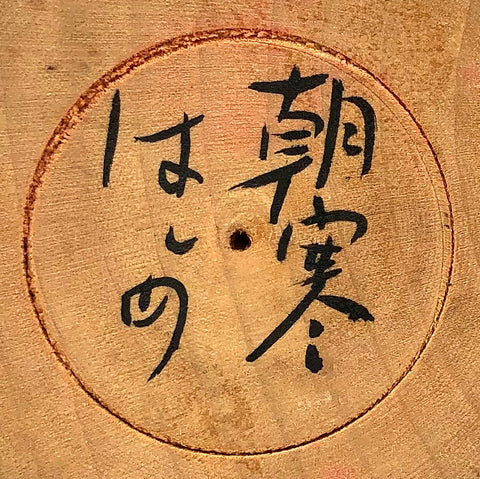 朝寒
はしめ